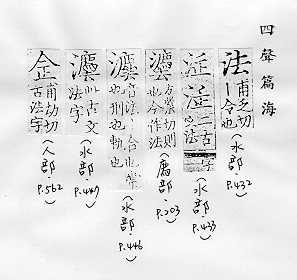 四聲篇海
法 甫乏切
一今也
(水部.P.432)
二古
文法
二字
(水部.P.433)
方業切則
也今作法
(廌部.P.203)
灋 音法
也刑也
(水部.P.446)
灋 此古文
法字
(水部.P.447)
佱 甫切切
古法字
(人部.P.562)